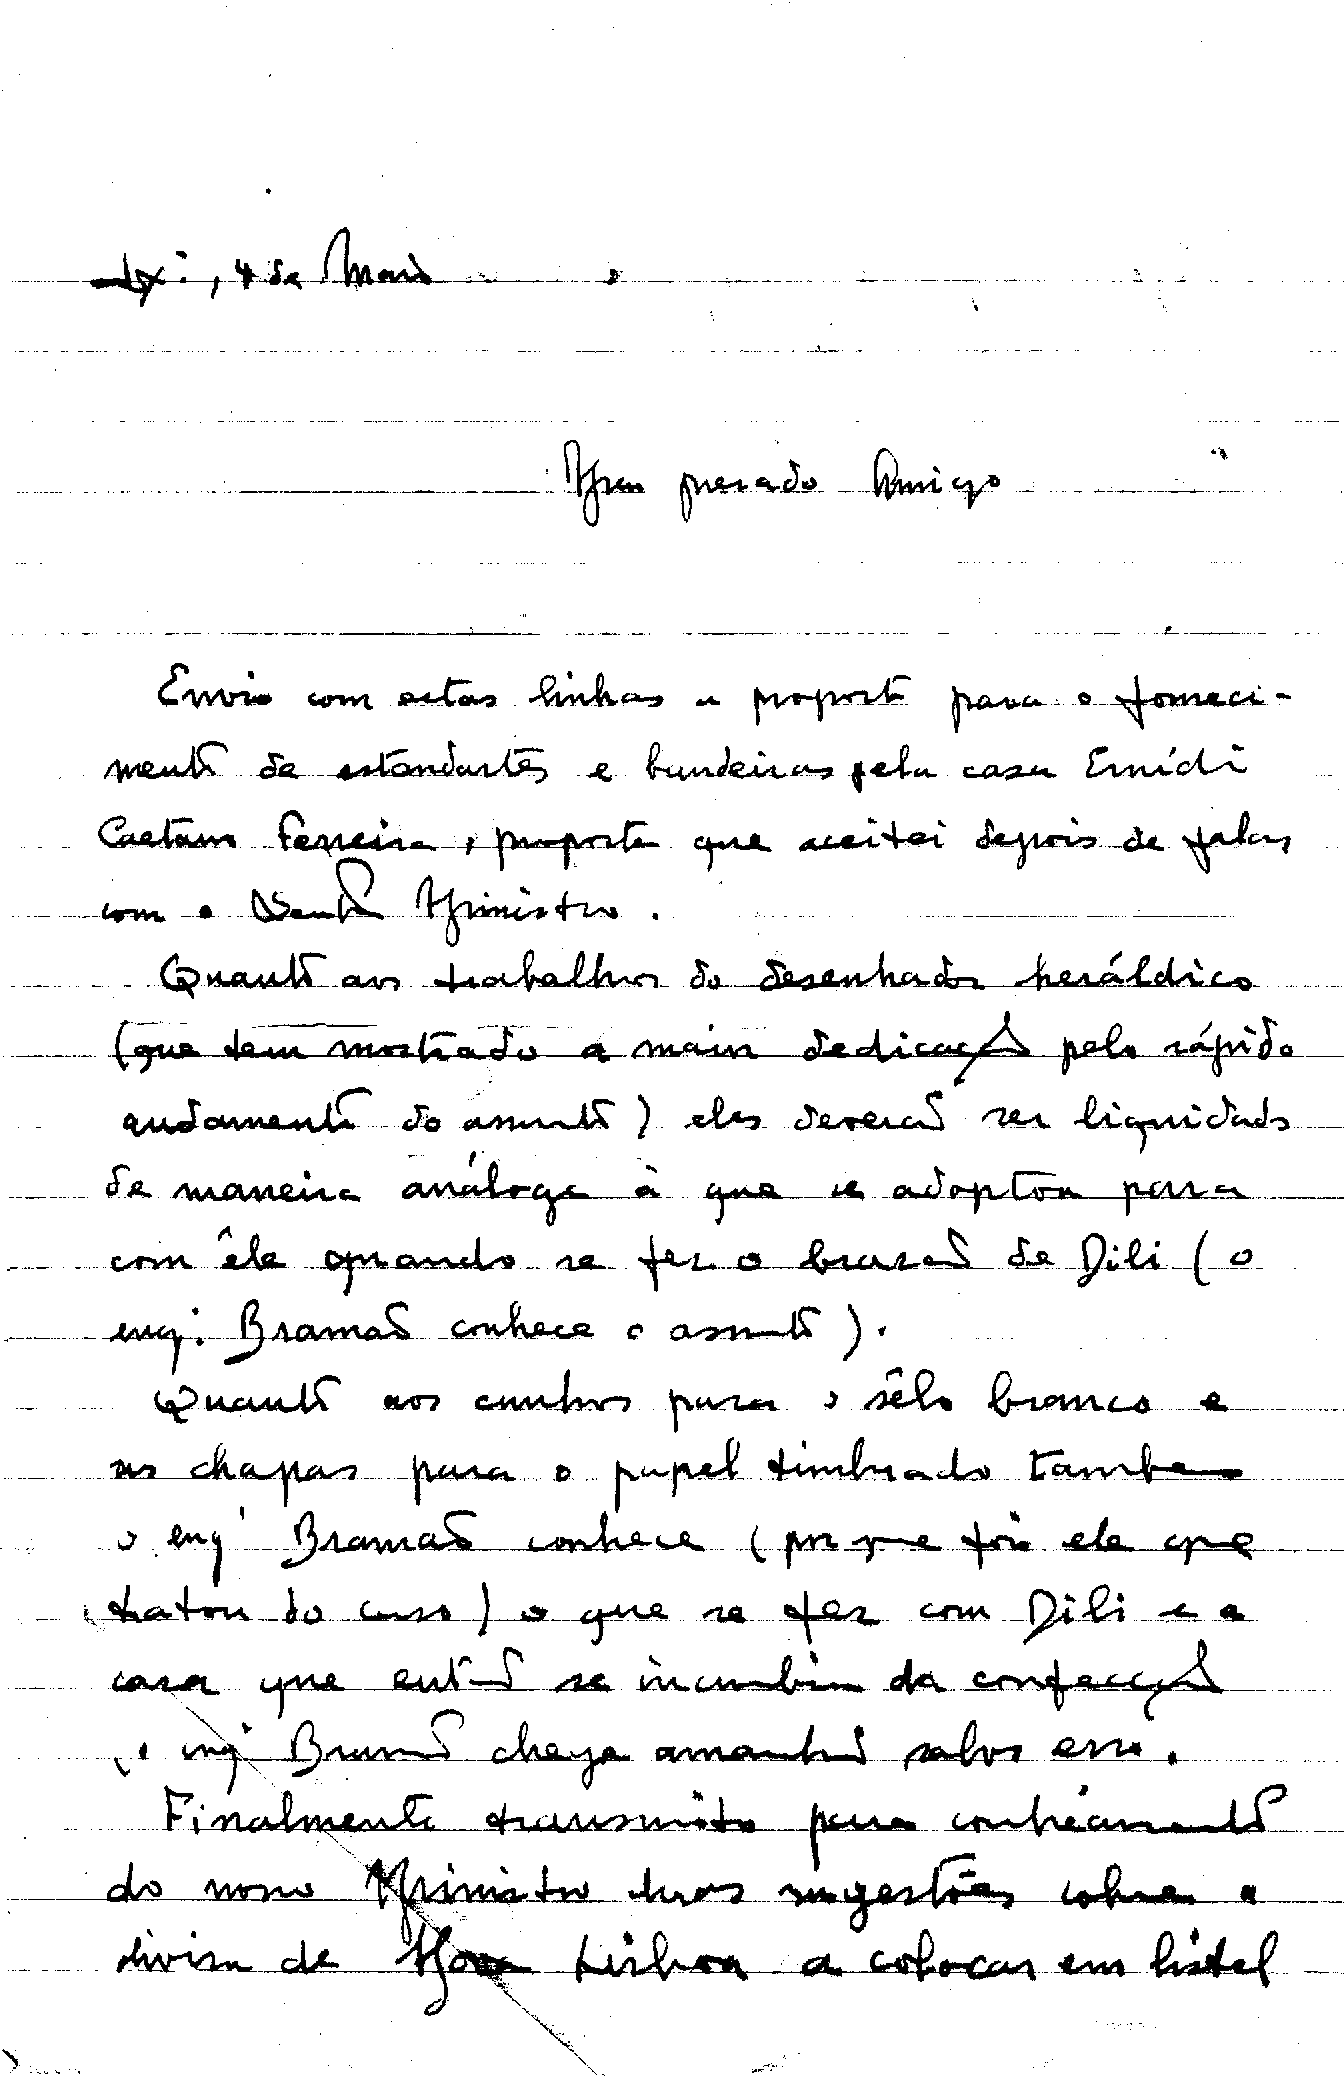 Lxª, 4 de Maio
Meu prezado Amigo
Envio com estas linhas a proposta para o forneci-
mento de estandartes e bandeiras pela casa Emídio
Caetano Ferreira, proposta que aceitei depois de falar
com o Senhor Ministro.
Quanto aos trabalhos do desenhador heráldico
(que tem mostrado a maior dedicação pelo rápido
andamento do assunto) eles deverão ser liquidados
de maneira análoga à que se adoptou para
com êle quando se fez o brazão de Dili (o
engº Bramão conhece o assunto).
Quanto aos cunhos para o sêlo branco e
as chapas para o papel timbrado tambem
o engº Bramão conhece (por que foi ele que
tratou do caso) o que se fez com Dili e a
casa que então se incumbiu da confecção
o engº Bramão chega amanhã salvo erro.
Finalmente transmito para conhecimento
do nosso Ministro duas sugestões sobre a
divisa de Nova Lisboa a colocar em listel